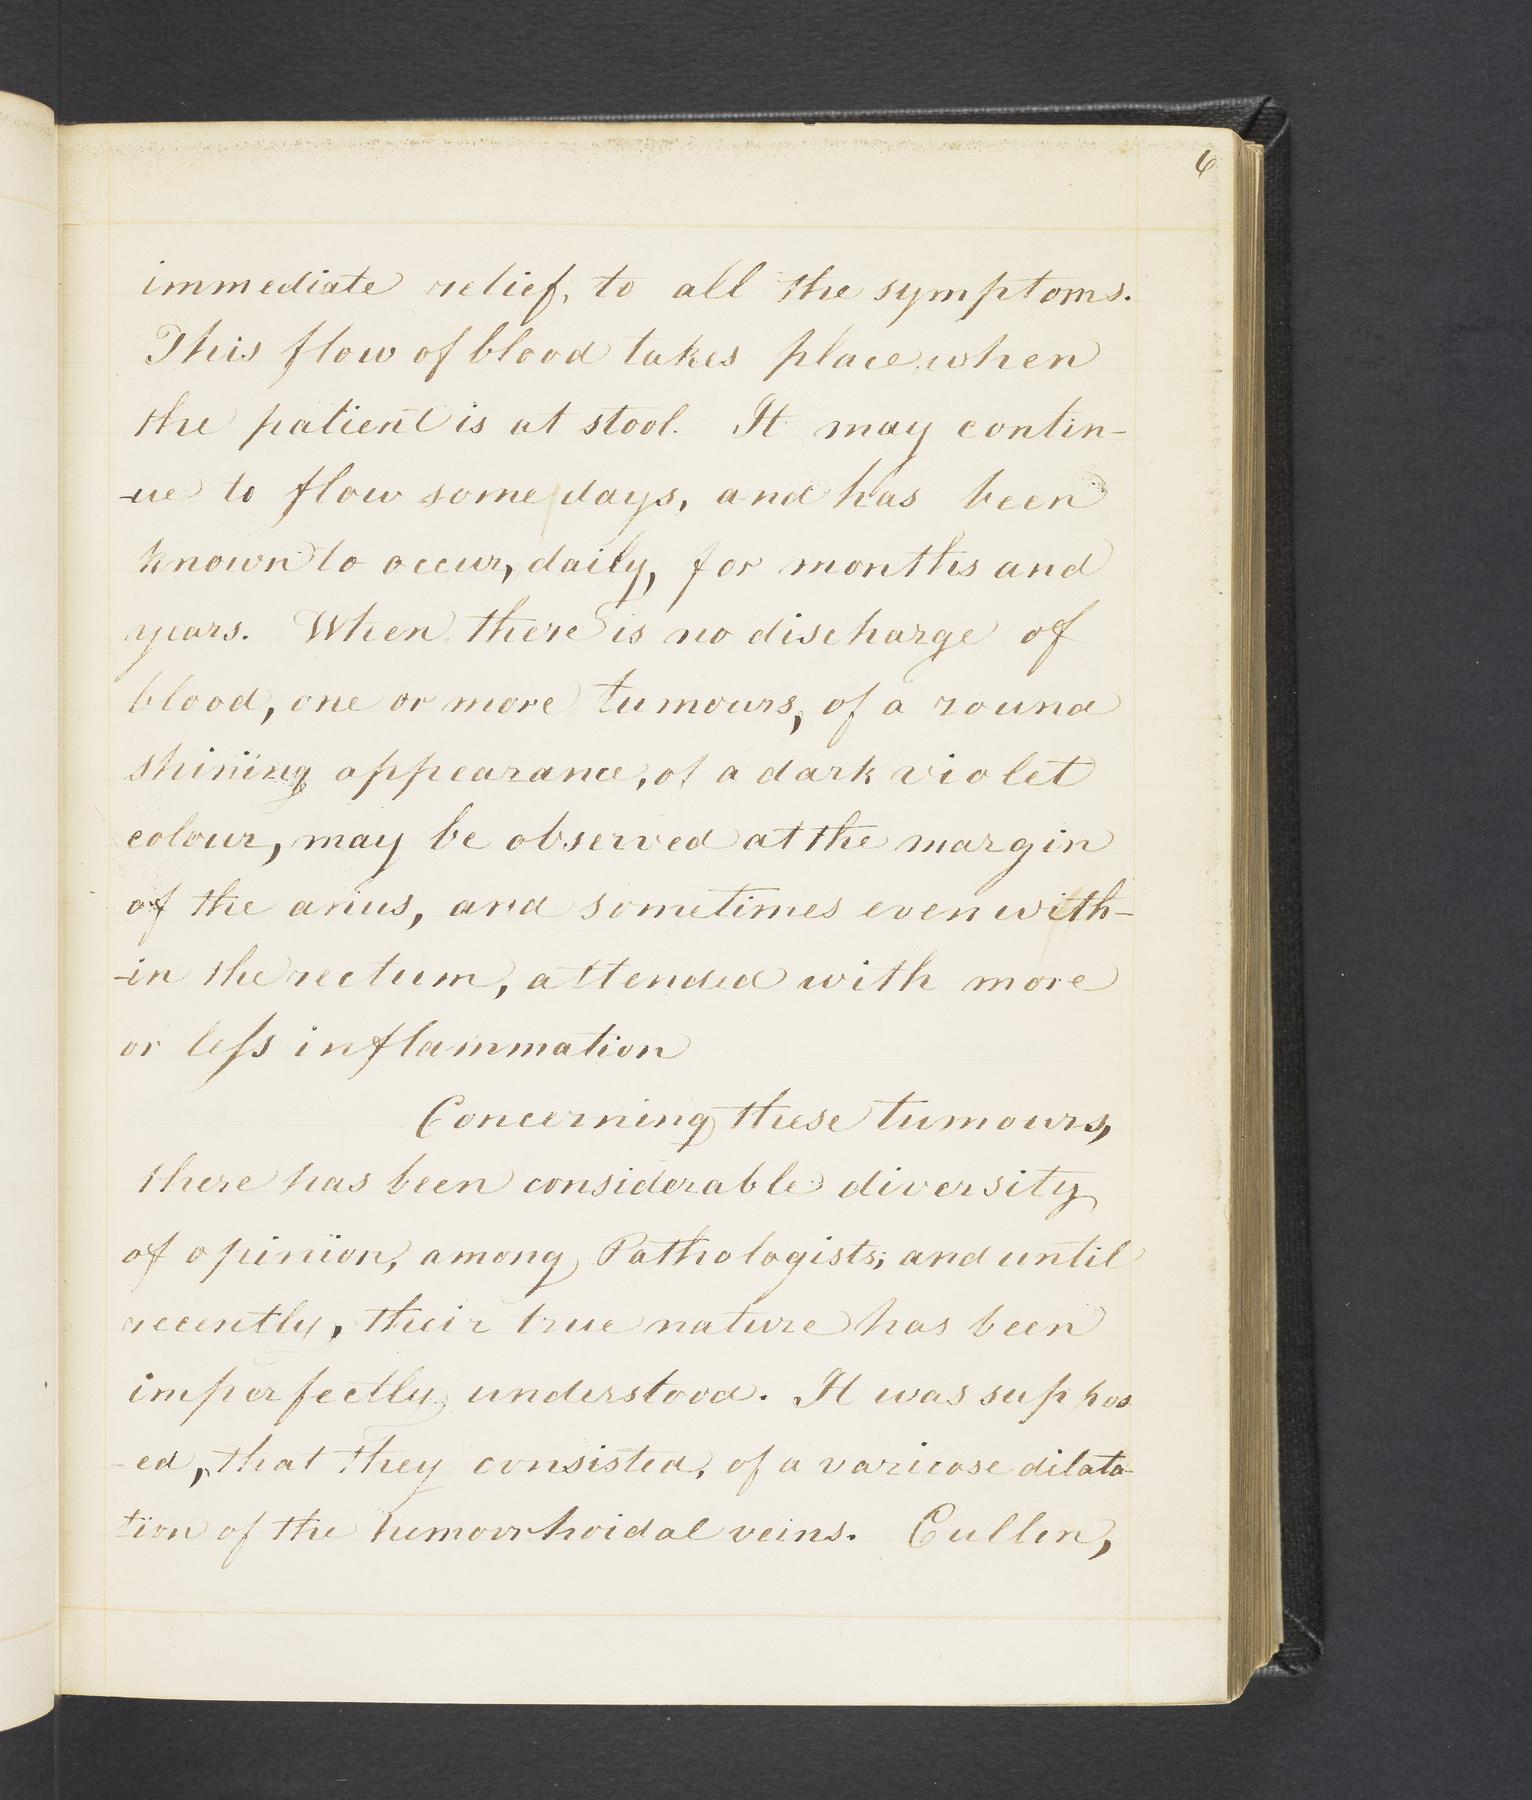 6
immediate relief, to all the symptoms.
This flow of blood takes place when
the patient is at stool. It may contin-
-ue to flow some days, and has been
known to occur, daily, for months and
years. When there is no discharge of
blood, one or more tumours, of a round
shining appearance, of a dark violet
colour, may be observed at the margin
of the anus, and sometimes even with-
-in the rectum, attended with more
or leſs inflammation
Concerning these tumours,
there has been considerable diversity
of opinion, among Pathologists; and until
recently, their true nature has been
imperfectly understood. It was suppos
-ed, that they consisted, of a varicose dilata-
tion of the hemorrhoidal veins. Cullen,